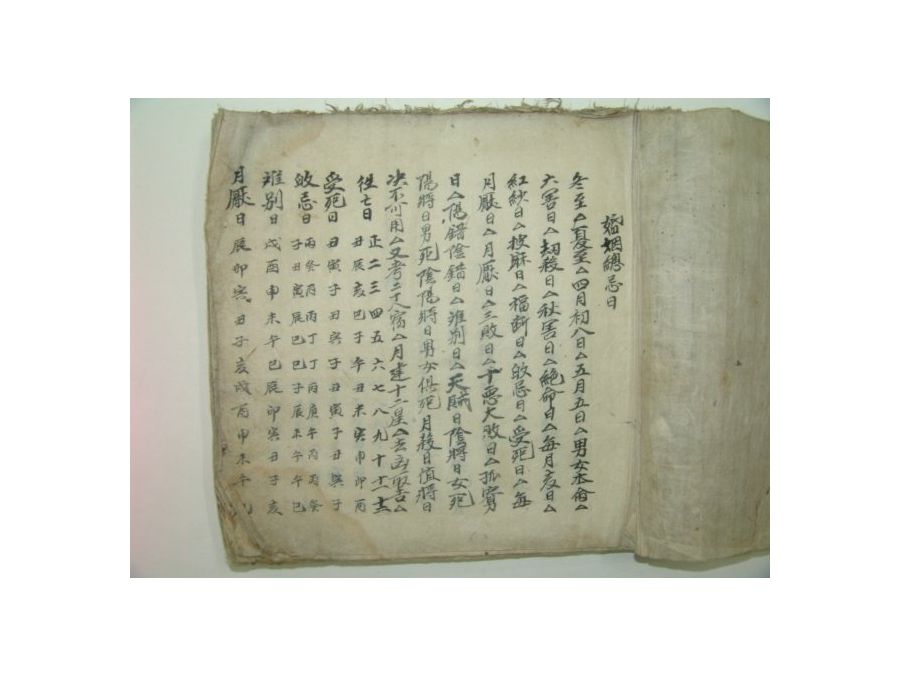 婚姻總忌日
冬至△夏至△四月初八日△五月五日△男女本命△
大害日△劫殺日△秋害日△絶命日△每月亥日△
紅紗日△披麻日△福断日△㐫忌日△受死日△每
月厭日△月厭日△三敗日△十悪大敗日△孤寡
日△陽錯陰錯日△難别日△天賊日陰將日女死
陽將日男死陰陽將日男女俱死月殺日值將日
决不可用△又考二十八宿△月建十二星△去凶取吉△
徃亡日 正二三四五六七八九十十一十二
丑辰亥巳子午丑未寅申卯酉
受死日 丑寅子丑寅子丑寅子丑寅子
忌日 丙子 癸丑 丙寅 丙辰 丁巳 丁巳 丙子 庚辰 午未 丙午 丙午 癸巳
难别日 戌酉申未午巳辰卯寅丑子亥
月厭日 辰卯寅丑子亥戌酉申未午